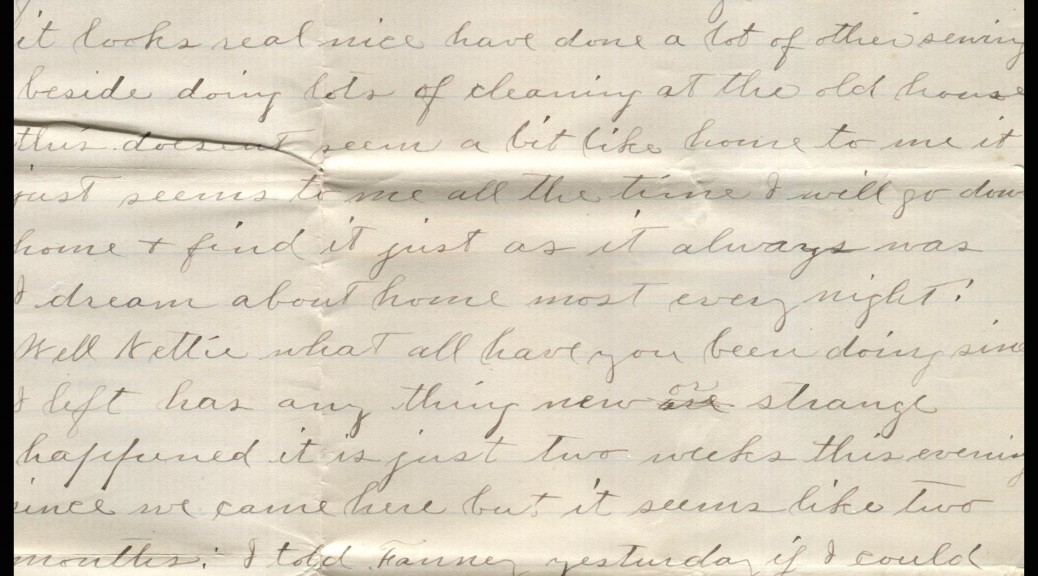 it looks real nice have done a lot of other sewing
beside doing lots of cleaning at the old house
this doesent seem a bit like home to me it
just seems to me all the time I will go down
home + find it just as it always was
I dream about home most every night.
Well Nettie what all have you been doing since
I left has any thing new or strange
happened it is just two weeks this evening
since we came here but it seems like two
months. I told Fanney yesterday if I could